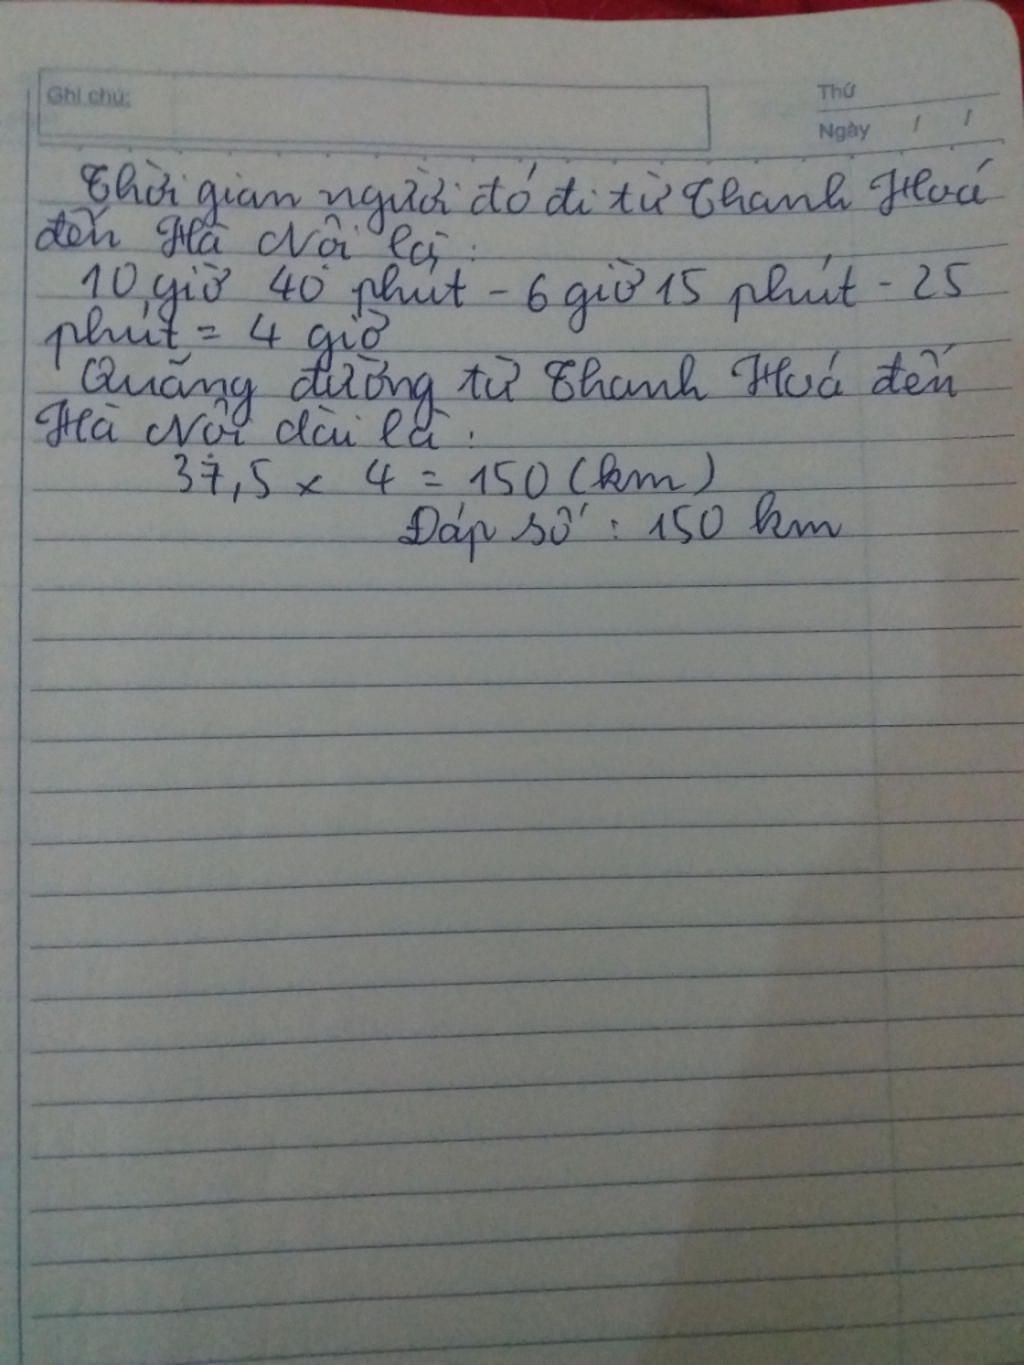 Ghi chú:
Thứ
Ngày / /
Thời gian người đó đi từ Thanh Hoá
đến Hà Nội là:
10 giờ 40 phút - 6 giờ 15 phút - 25
phút = 4 giờ
Quãng đường từ Thanh Hoá đến
Hà Nội dài là:
37,5 x 4 = 150 (km)
Đáp số: 150 km